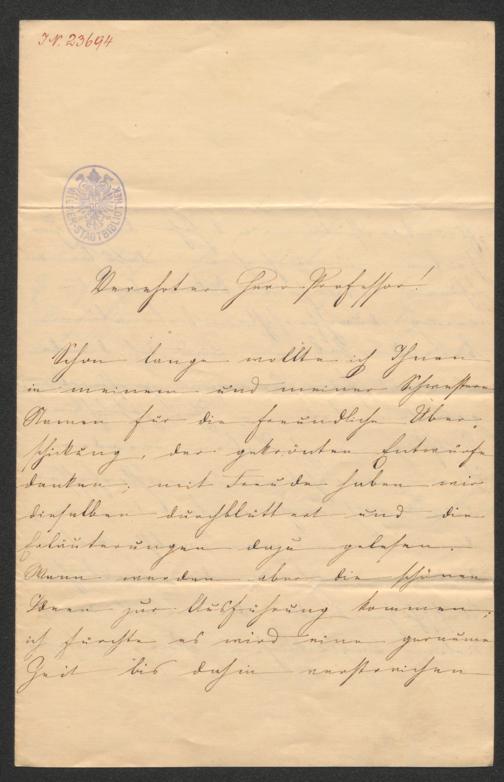 I.N. 23694
WIENER-STADTBIBLIOTHEK
Verehrter Herr Professor!
Schon lange wollte ich Ihnen
in meinem und meiner Schwestern
Namen für die freundliche Über-
schickung, der gekrönten Entwürfe
danken; mit Freude haben wir
dieselben durchblättert und die
Erläuterungen dazu gelesen.
Wann werden aber die schönen
Ideen zur Ausführung kommen;
ich fürchte es wird eine geraume
Zeit bis dahin verstreichen